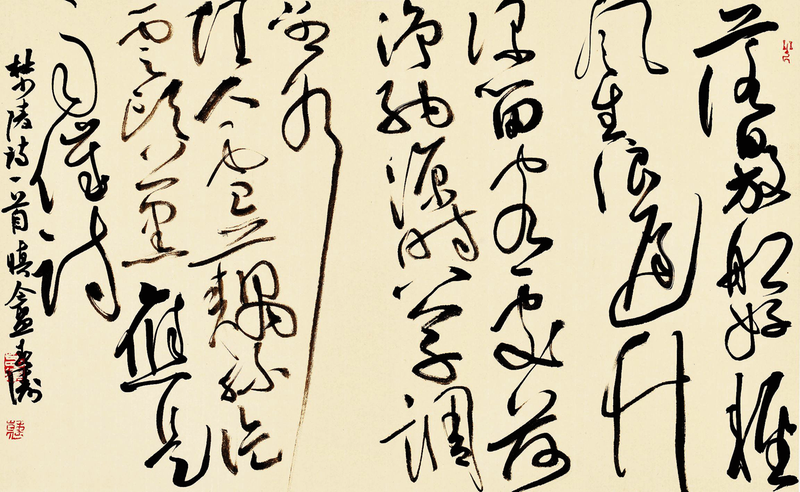 落日放船好輕
風生浪遲竹
深留客處荷
淨納涼時公子調
冰水
佳人雪藕絲片
雲頭上黑應是
雨催詩
杜陵詩一首慎盦